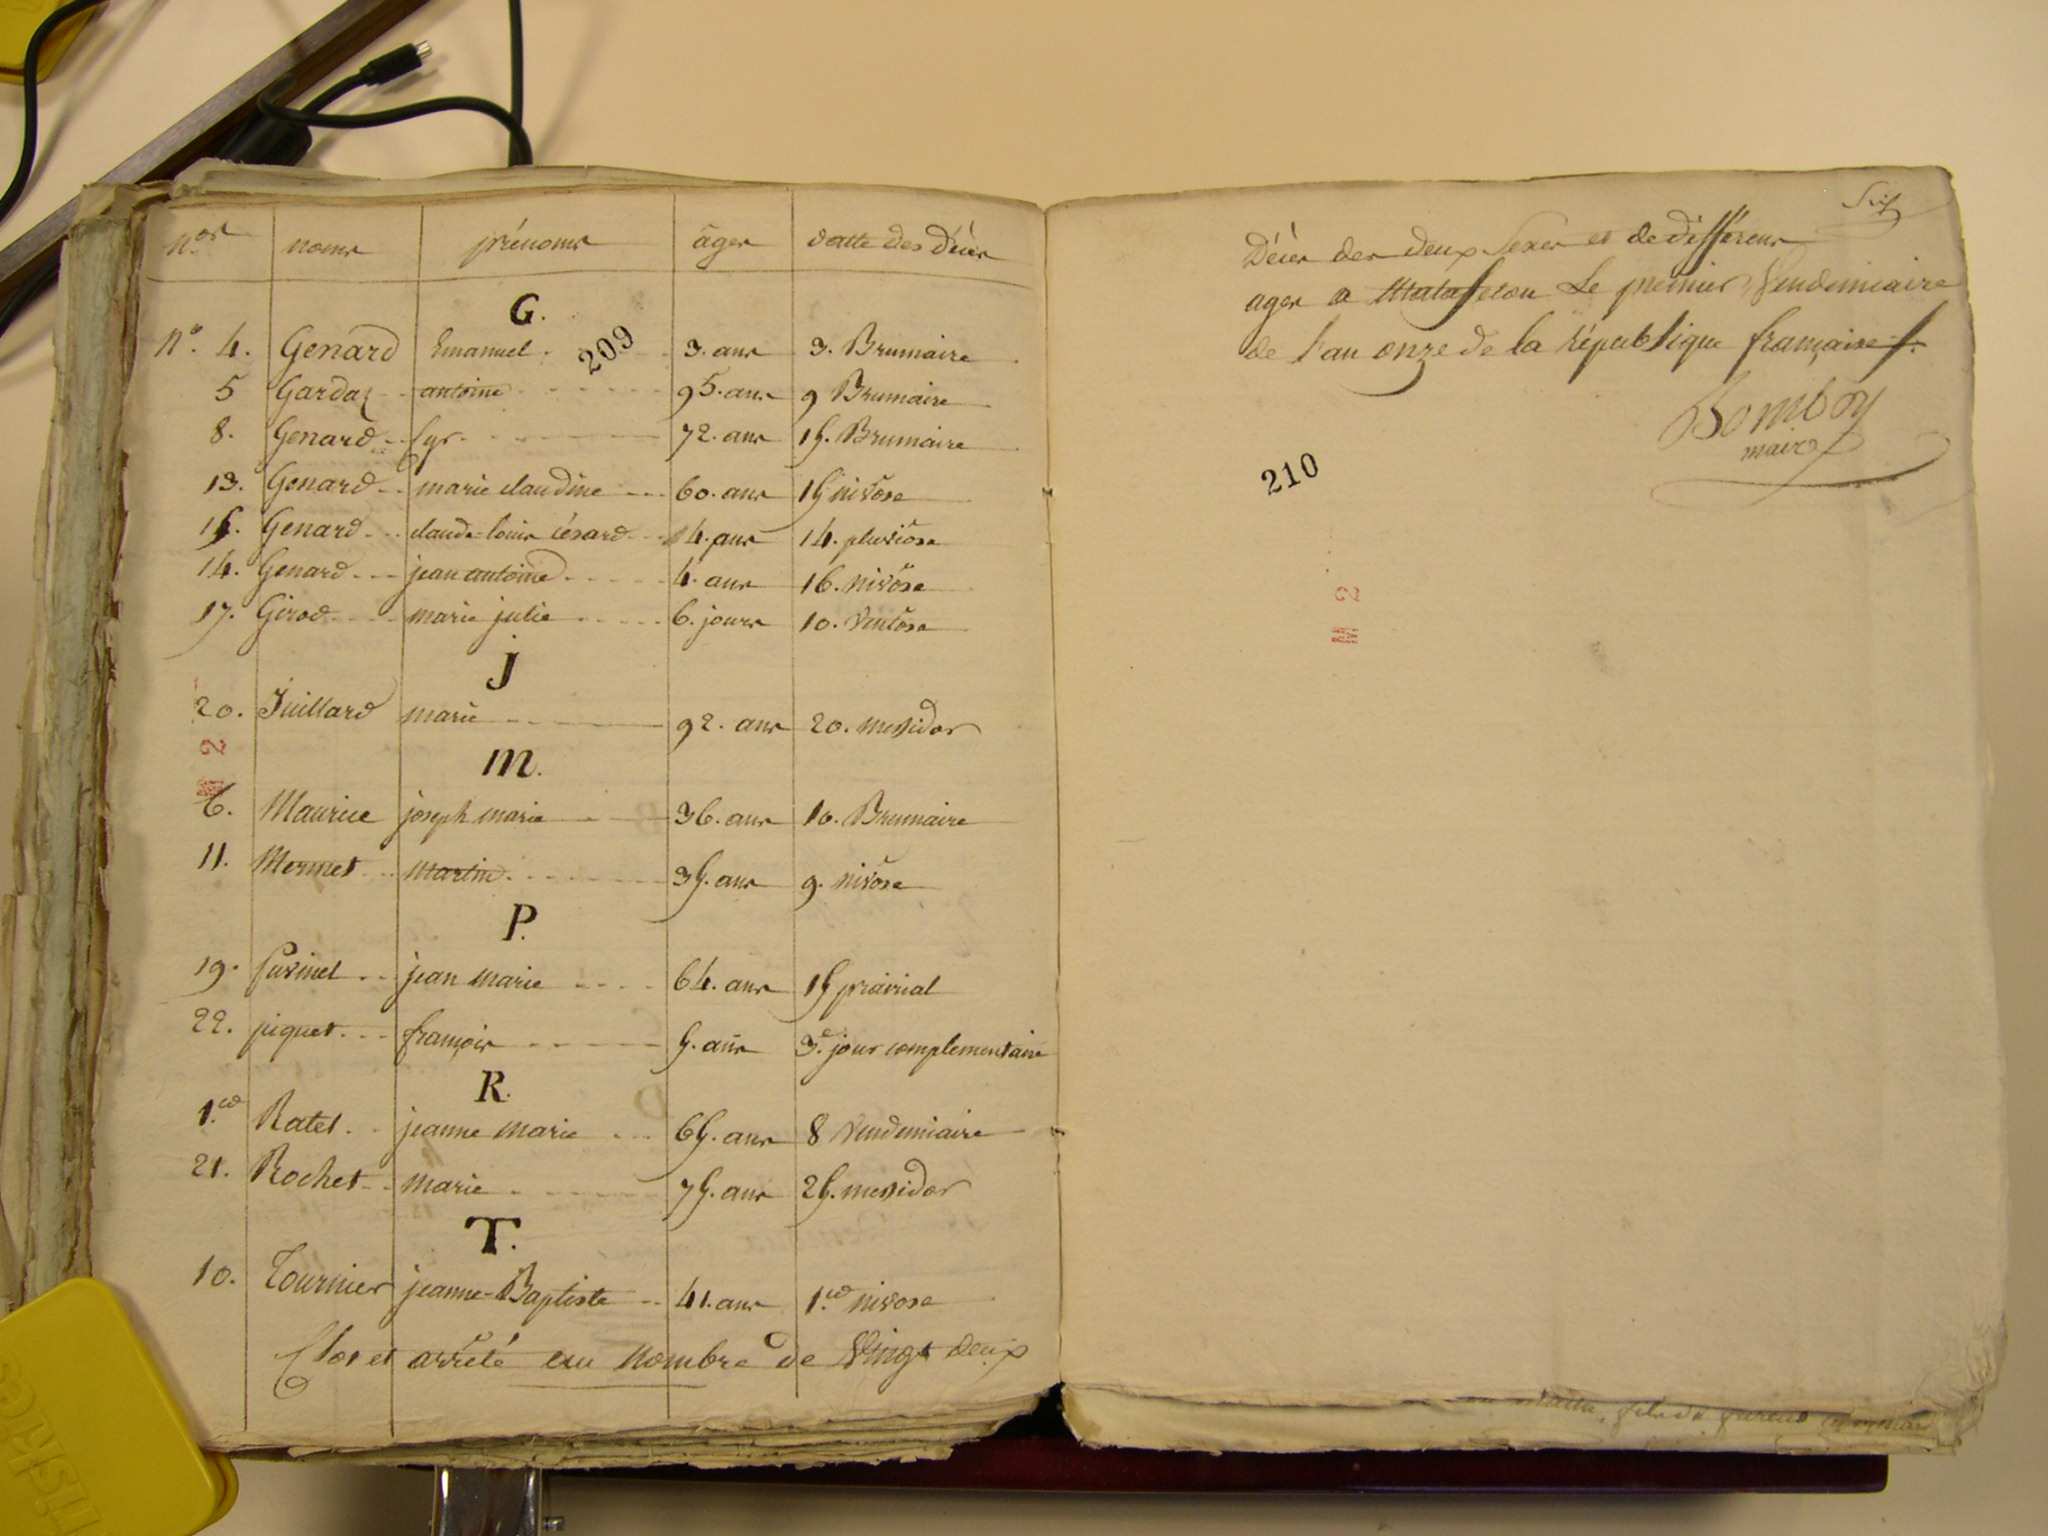 n.os noms prénoms âges datte des Décès
G.
209
n.° 4. Genard Emanuel 3. ans 3. Brumaire
5 Gardaz antoine 95. ans 9 Brumaire
8. Genard Cyr 72. ans 15. Brumaire
13. Genard marie claudine 60. ans 15 nivôse
15. Genard claude-louis césard 14. ans 14. pluviôse
14. Genard jean antoine 4. ans 16. nivôse
17. Girod marie julie 6. jours 10. Ventôse
J
20. Juillard marie 92. ans 20. messidor
M.
6. Maurice joseph marie 36. ans 10. Brumaire
11. Mermet Martin 35. ans 9. nivôse
P.
19. Puvinel jean marie 64. ans 15 prairial
22. piquet françois 5. ans 3.e jour complementaire
R.
1.er Ratel jeanne marie 65. ans 8 Vendemiaire
21. Rochet marie 75. ans 25. messidor
T.
10. Tournier jeanne-Baptiste 41. ans 1.er nivose
Clos et arrêté au Nombre de Vingt deux
Décès des deux Sexes et de différens
ages a Matafelon Le premier Vendemiaire
de l'an onze de la République française
Bomboy
maire
210